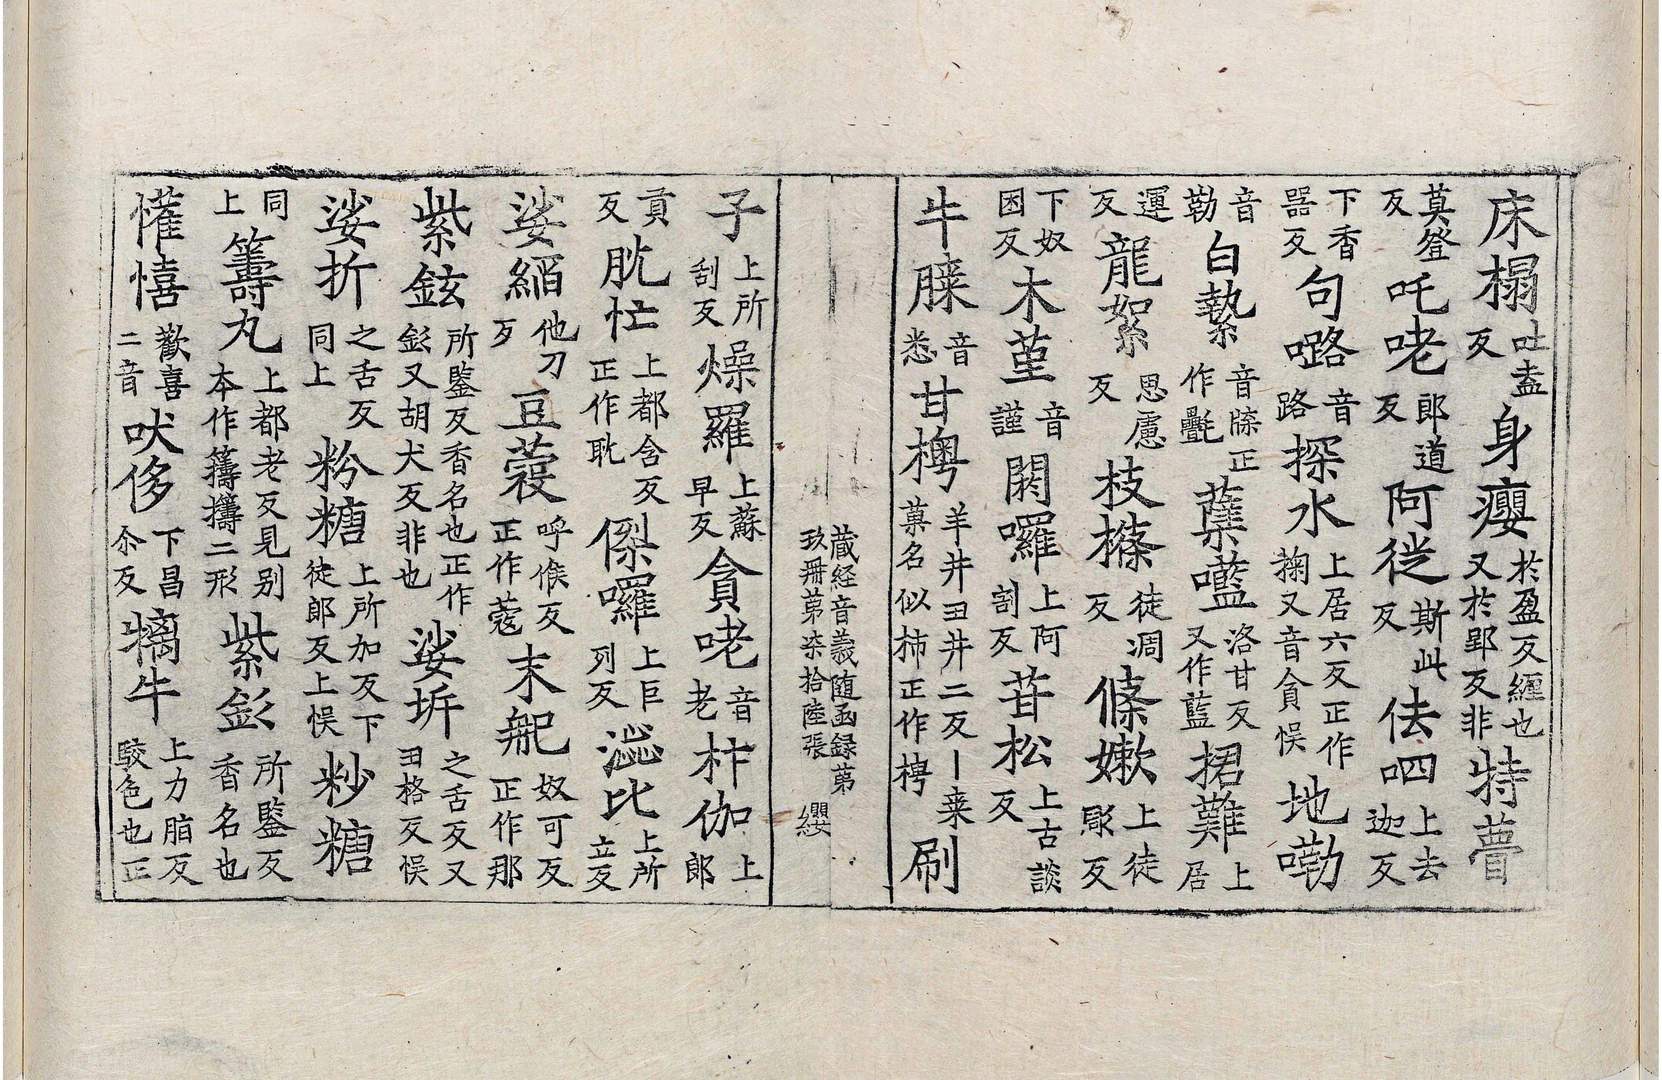 床榻吐盍反身癭於盈反纓也又於郢反非特蕾
莫登反吒咾郎道反阿㣙斯此反佉呬上去迦反
下香器反句㗉音路探水上居六反正作掬又音貪悮地嘞
音勒白縶音牒正作氎蘃㘕洛甘反又作藍捃難上居
運反龍絮思慮反枝樤徒凋反條嫰上徒彫反
下奴困反木菫音謹閼囉上阿割反苷松上古談反
牛膝音悉甘㮙羊井𦥑井二反丨棗菓名似柿正作梬刷
藏経音義随函録第玖册苐柒拾陸張 纓
子上所刮反燥羅上蘇早反貪咾音老柞伽上郎
貢反肬忙上都含反正作耽傑囉上巨列反澁比上所立反
娑縚他刀反豆蔲呼候反正作蔻末㲌奴可反正作那
紫鉉所鑒反香名也正作釤又胡犬反非也娑坼之舌反又𦥑格反悮
娑折之舌反同上粆糖上所加反下徒郎反上悮粆糖
同上籌丸上都老反見别本作籌擣二形紫釤所鑒反香名也
懽憘歡喜二音吠侈下昌尒反犡牛上力脂反駮色也正